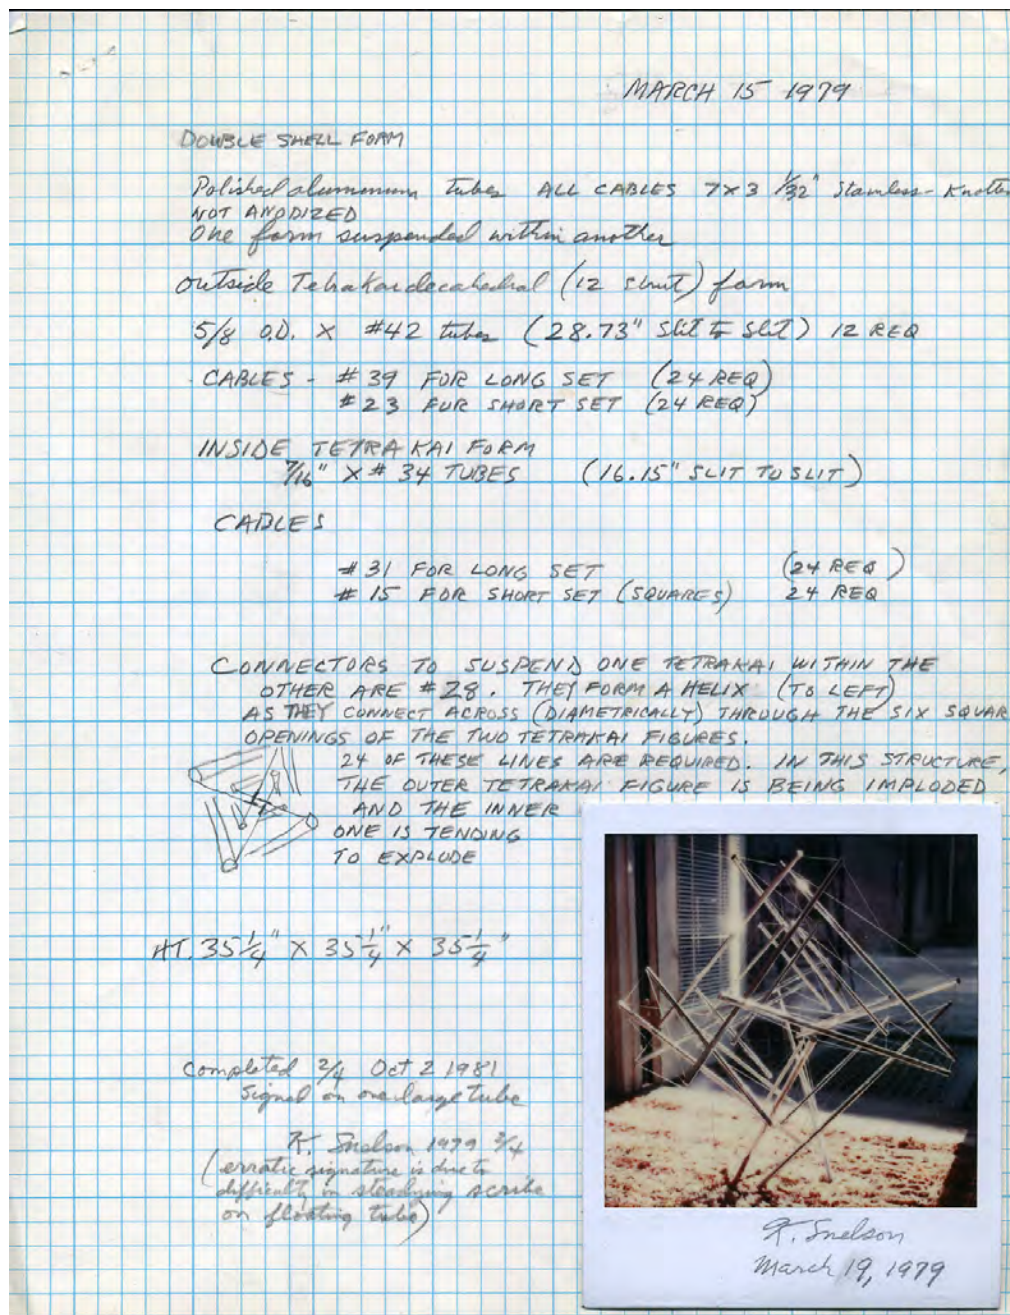 MARCH 15 1979
DOUBLE SHELL FORM
Polished aluminum tubes ALL CABLES 7X3 1/32" Stainless-Knotte
NOT ANODIZED
One form suspended within another
outside Tetrakaidecahedral (12 strut) form
5/8 O.D. X #42 tubes (28.73" Slit to Slit) 12 REQ
CABLES - #39 FOR LONG SET (24 REQ)
#23 FOR SHORT SET (24 REQ)
INSIDE TETRAKAI FORM
7/16" X #34 TUBES (16.15" SLIT TO SLIT)
CABLES
#31 FOR LONG SET (24 REQ)
#15 FOR SHORT SET (SQUARES) 24 REQ
CONNECTORS TO SUSPEND ONE TETRAKAI WITHIN THE
OTHER ARE #28. THEY FORM A HELIX (TO LEFT)
AS THEY CONNECT ACROSS (DIAMETRICALLY) THROUGH THE SIX SQUAR
OPENINGS OF THE TWO TETRAKAI FIGURES.
24 OF THESE LINES ARE REQUIRED. IN THIS STRUCTURE,
THE OUTER TETRAKAI FIGURE IS BEING IMPLODED
AND THE INNER
ONE IS TENDING
TO EXPLODE
HT. 35 1/4" X 35 1/4" X 35 1/4"
Completed 2/4 Oct 2 1981
Signed on one large tube
K. Snelson 1979 2/4
(erratic signature is due to
difficulty in steadying scribe
on floating tube)
K. Snelson
March 19, 1979